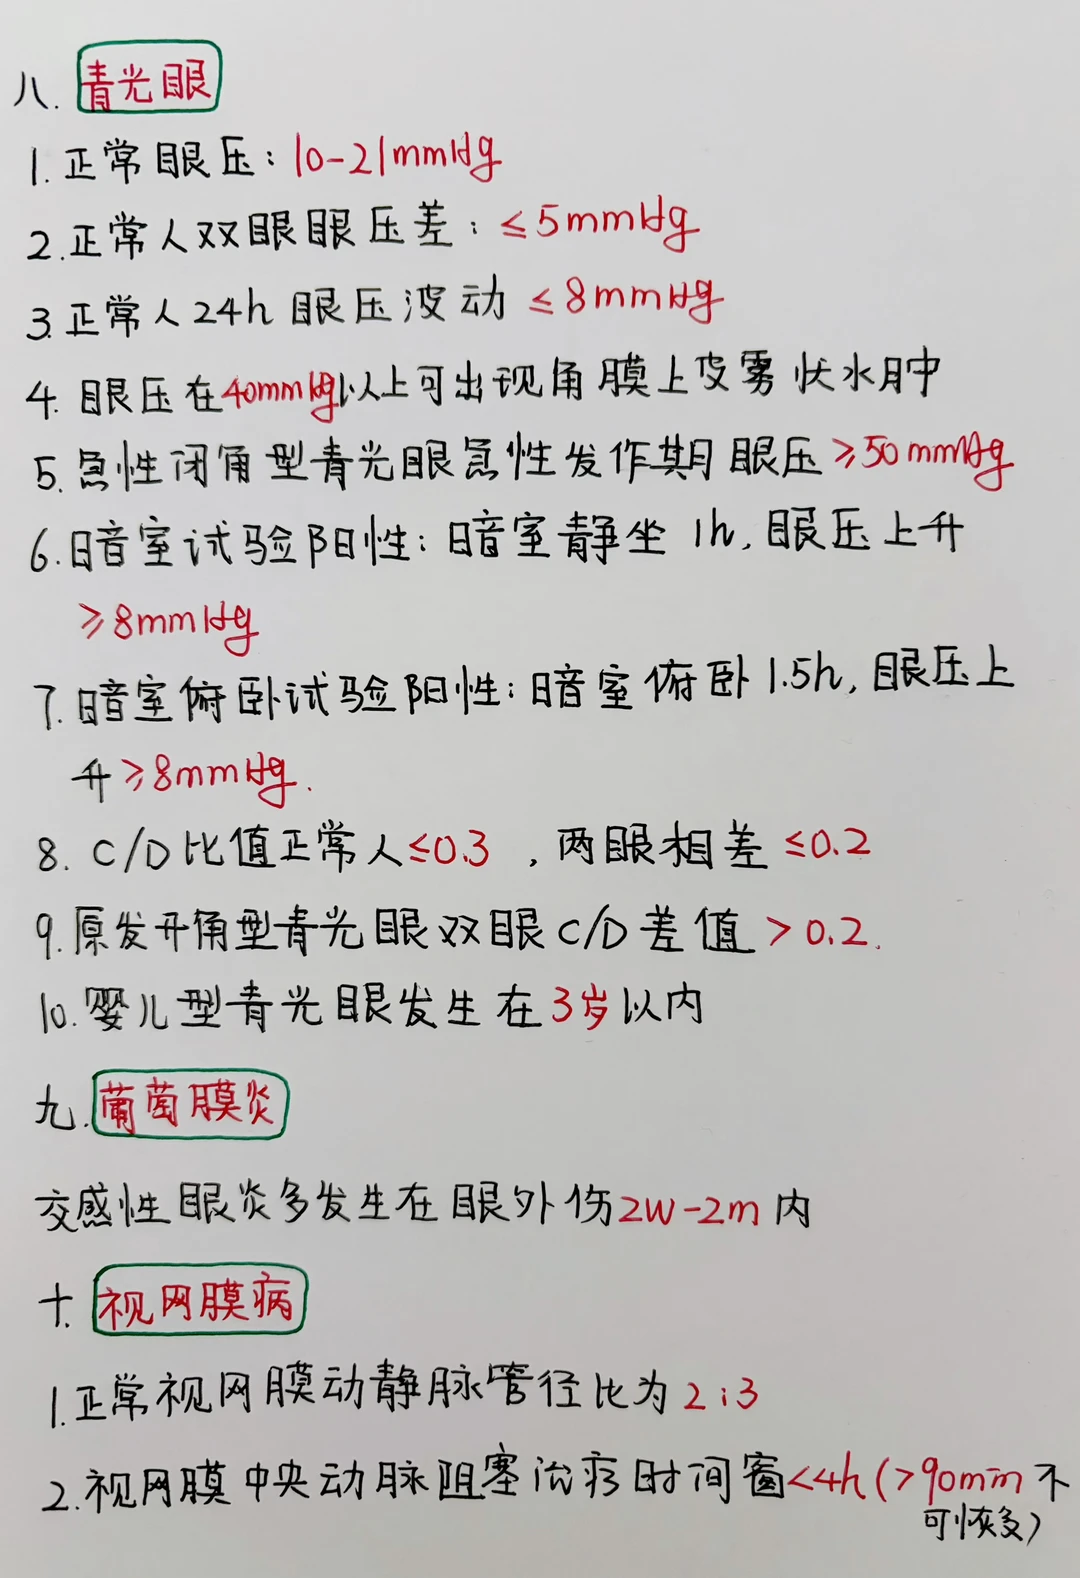 八. 青光眼
1. 正常眼压: 10-21mmHg
2. 正常人双眼眼压差: ≤5mmHg
3. 正常人24h 眼压波动 ≤8mmHg
4. 眼压在40mmHg以上可出现角膜上皮雾状水肿
5. 急性闭角型青光眼急性发作期眼压≥50mmHg
6. 暗室试验阳性: 暗室静坐 1h, 眼压上升
≥8mmHg
7. 暗室俯卧试验阳性: 暗室俯卧1.5h, 眼压上
升≥8mmHg.
8. C/D比值正常人≤0.3 , 两眼相差≤0.2
9. 原发开角型青光眼双眼C/D差值>0.2.
10. 婴儿型青光眼发生在3岁以内
九. 葡萄膜炎
交感性眼炎多发生在眼外伤2w-2m内
十. 视网膜病
1. 正常视网膜动静脉管径比为2:3
2. 视网膜中央动脉阻塞治疗时间窗<4h(>90min不
可恢复)